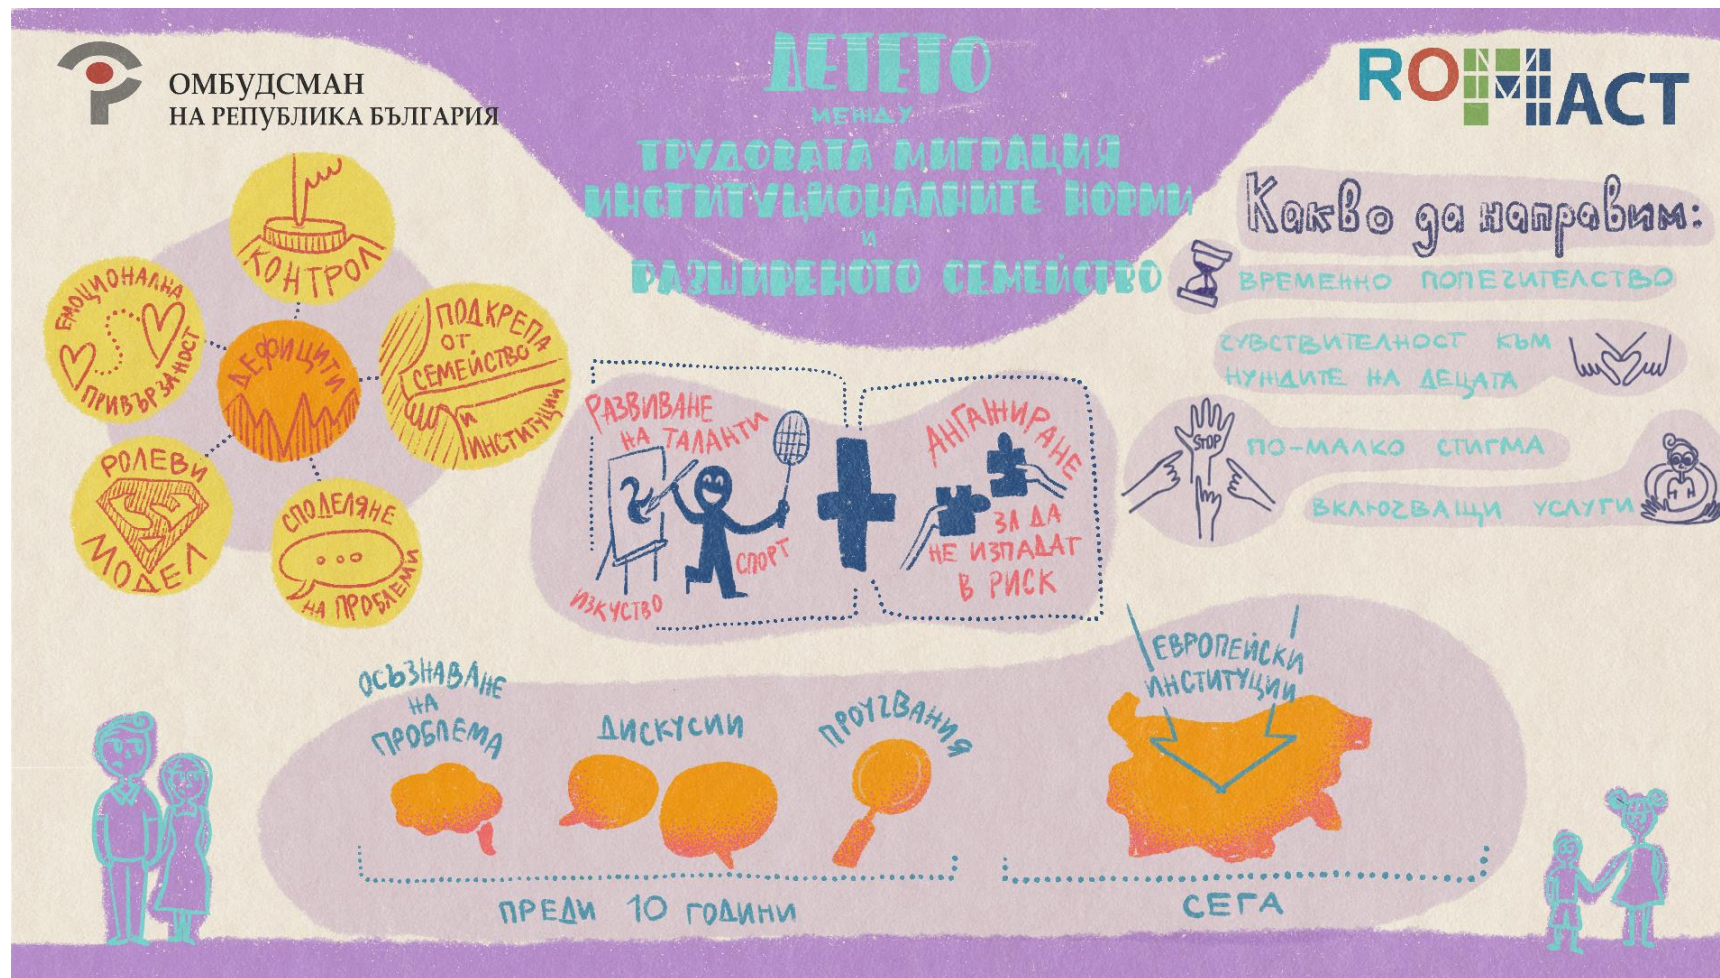 ОМБУДСМАН
НА РЕПУБЛИКА БЪЛГАРИЯ
ДЕТЕТО
МЕЖДУ
ТРУДОВАТА МИГРАЦИЯ
ИНСТИТУЦИОНАЛНИТЕ НОРМИ
И
РАЗШИРЕНОТО СЕМЕЙСТВО
ROMACT
КОНТРОЛ
ЕМОЦИОНАЛНА
ПРИВЪРЗАНОСТ
ДЕФИЦИТИ
ПОДКРЕПА
ОТ
СЕМЕЙСТВО
И
ИНСТИТУЦИИ
РОЛЕВИ
МОДЕЛ
СПОДЕЛЯНЕ
НА ПРОБЛЕМИ
РАЗВИВАНЕ
НА ТАЛАНТИ
ИЗКУСТВО
СПОРТ
АНГАЖИРАНЕ
ЗА ДА
НЕ ИЗПАДАТ
В РИСК
Какво да направим:
ВРЕМЕННО ПОПЕЧИТЕЛСТВО
ЧУВСТВИТЕЛНОСТ КЪМ
НУЖДИТЕ НА ДЕЦАТА
STOP
ПО-МАЛКО СТИГМА
ВКЛЮЧВАЩИ УСЛУГИ
ОСЪЗНАВАНЕ
НА
ПРОБЛЕМА
ДИСКУСИИ
ПРОУЧВАНИЯ
ПРЕДИ 10 ГОДИНИ
ЕВРОПЕЙСКИ
ИНСТИТУЦИИ
СЕГА